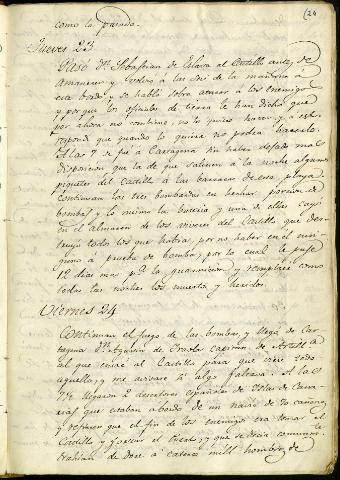 (24
como la pasada.
Jueves 23
Pasó Dn. Sebastian de Eslava al Castillo antes de
Amanecer y volvió a las seis de la mañana a
este bordo, y se habló sobre atacar a los enemigos
y porque los oficiales de tierra le han dicho que
por ahora no combiene, no lo quiso hacer, y a esto
respondi que quando lo quiera no podra hacerlo.
A las 7 se fue a Cartagena sin haver dejado mas
disposicion que la de que saliesen a la noche algunos
piquetes del Castillo a las barracas de esa playa.
Continuan los tres bombardas en hechar porcion de
bombas, y lo mismo la bateria y una de ellas cayó
en el almacen de los viveres del Castillo que des-
truyó todos los que habia, por no haber en el nin-
guno á prueba de bomba, por lo cual le puse
12 dias mas pa. la guarnicion y remplacé como
todas las noches los muertos y heridos.
Viernes 24
Continuan el fuego de las bombas, y llegó de Car-
tagena Dn. Agustin de Iraola capitan de Artilla.
al que envie al Castillo para que viese todo
aquello, y me avisara si algo faltava. A las
7½ llegaron 2 desertores españoles de Islas de Cana-
rias que estaban abordo de un navio de 70 cañones
y refieren que el fin de los enemigos era tomar el
Castillo y forzar el Puerto, y que se decia comunmte.
trahian de doce a catorce mill hombres de